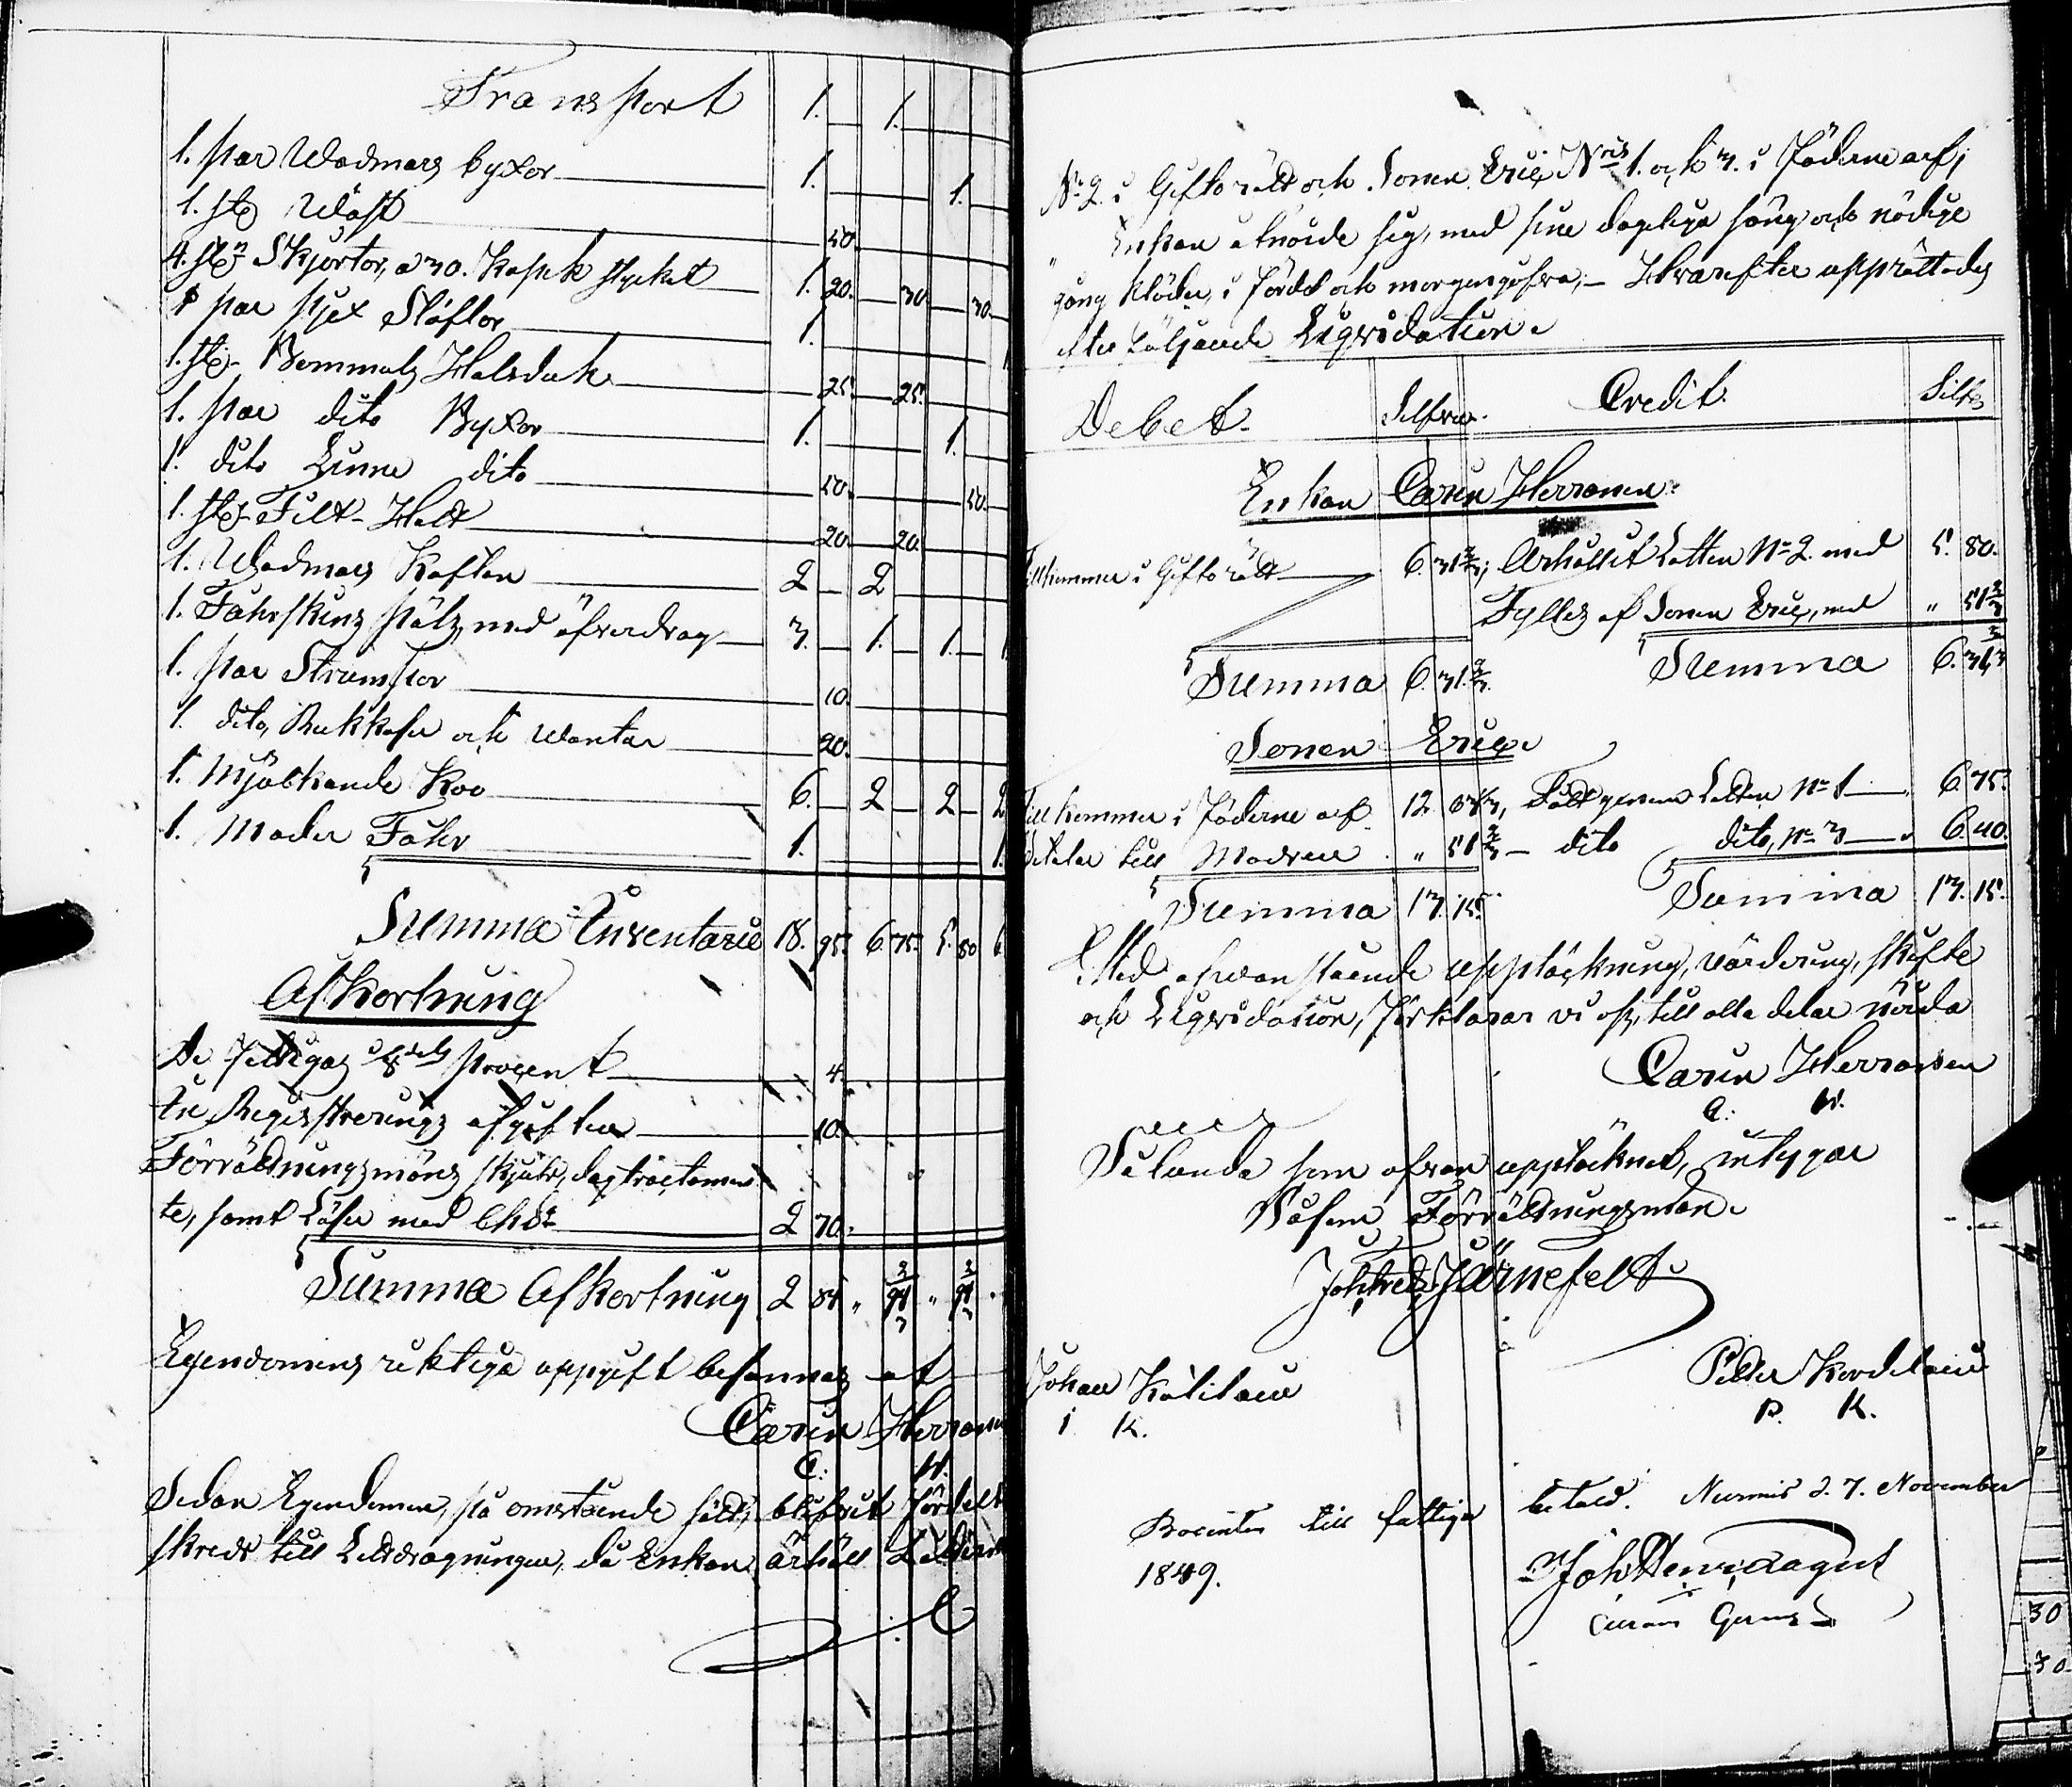 Transport 1. 1.
1. par Wadmars byxor 1. 1.
1. st Wäst 50.
4. st Skjortor, a 30. Kopek stycket 1. 20. 30. 30.
1 par pjex Stöflor 1.
1. st Bommuls Halsduk 25. 25.
1. par dito Byxor 1. 1.
1. dito Linne dito 50. 50.
1. st Filt-Hatt 20. 20.
1. Wadmars Kaftan 2 2
1. Fåhrskins pälz, med öfverdrag 3. 1. 1. 1
1. par Strumpor 10.
1. dito, Bukkaser och Wantar 20.
1. Mjölkande Koo 6. 2 2 2
1. Moder Fåhr 1. 1.
Summa Inventarie 18. 95. 6 75. 5. 80 6
Afkortning
De fattigas 1/8 dels procent 4.
Registrerings afgiften 10.
Förrättningsmäns skjuts, dagtractamen
te, samt Lösen med Ch. 2 70.
Summa Afkortning 2 84 " 94 2/3 " 94 2/3
Egendomens riktiga uppgift besannas at
Carin Herranen
C. H.
Sedan Egendomen, på omstående sätt, blifvit fördelt
skreds till Lottdragningen, då Enkan ärhöll Lotten
No 2 i Giftorätt och Sonen Eric Nris 1. och 3. i Fäderne arf;
" Enkan åtnöide sig, med sine dageliga säng och nödige
gång kläder, i fördel och morgongåfva; – Hvarefter upprättades
efter följande Liqvidation.
Debet. Silfver. Credit. Silfr
Enkan Carin Herranen.
Tillkommer i Giftorätt 6. 31 2/3; Erhållit Lotten No 2 med 5. 80.
Fylles af Sonen Eric, med " 51 2/3
Summa 6. 31 2/3. Summa 6. 31 2/3
Sonen Eric.
Tillkommer i Fäderne arf 12. 63 1/3, Fått genom Lotten No 1 6. 75.
Betalar till Modren " 51 2/3 – dito dito, No 3 6. 40.
Summa 13. 15. Summa 13. 15.
Med ofvanstående uppteckning, värdering, skifte
och Liqvidation, förklarar vi oss, till alla delar nöida
Carin Herranen
C. H.
Sålunda som ofvan upptecknat, intygar
Såsom Förrättningsman.
Joh Fredr Järnefelt
Johan Kätilainen Petter Kordelainen
I K. P. K.
Procenten till fattige betald. Nurmis d. 7. November
1849. Joh Henr Lagus